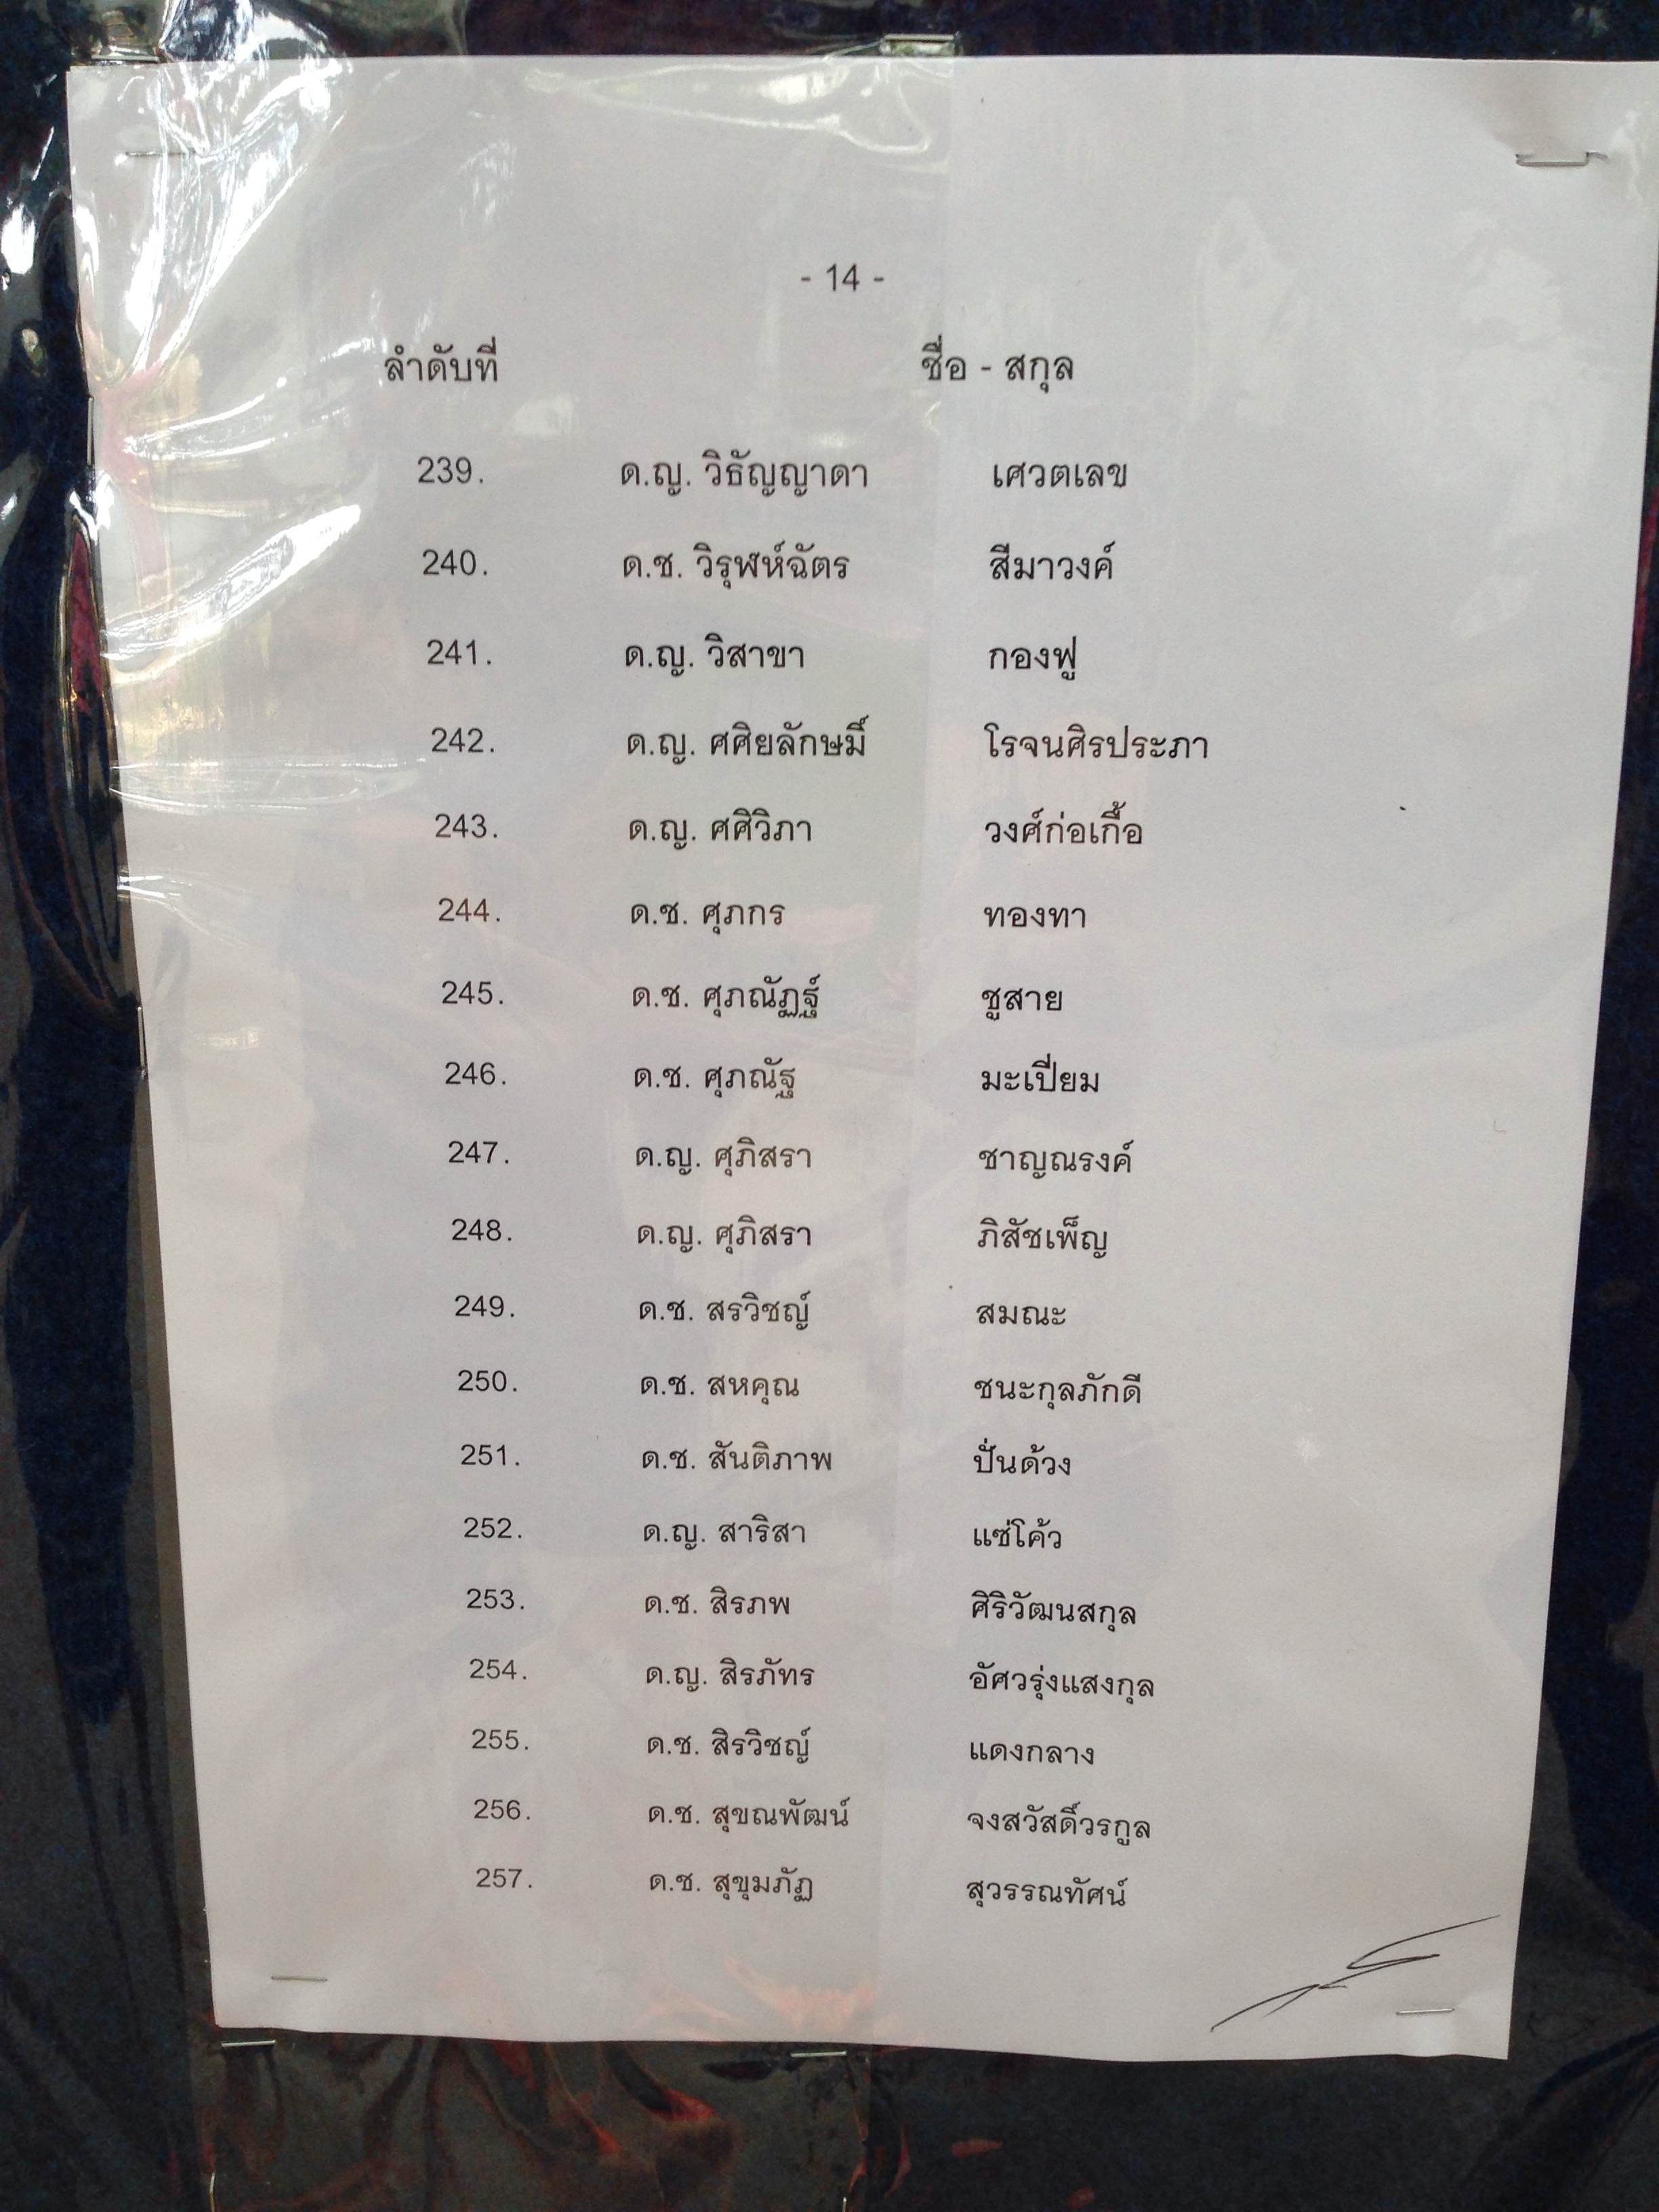 - 14 -
ลำดับที่ ชื่อ - สกุล
239. ด.ญ. วิธัญญาดา เศวตเลข
240. ด.ช. วิรุฬห์ฉัตร สีมาวงค์
241. ด.ญ. วิสาขา กองฟู
242. ด.ญ. ศศิยลักษมิ์ โรจนศิรประภา
243. ด.ญ. ศศิวิภา วงศ์ก่อเกื้อ
244. ด.ช. ศุภกร ทองทา
245. ด.ช. ศุภณัฏฐ์ ชูสาย
246. ด.ช. ศุภณัฐ มะเปี่ยม
247. ด.ญ. ศุภิสรา ชาญณรงค์
248. ด.ญ. ศุภิสรา ภิสัชเพ็ญ
249. ด.ช. สรวิชญ์ สมณะ
250. ด.ช. สหคุณ ชนะกุลภักดี
251. ด.ช. สันติภาพ ปั่นด้วง
252. ด.ญ. สาริสา แซ่โค้ว
253. ด.ช. สิรภพ ศิริวัฒนสกุล
254. ด.ญ. สิรภัทร อัศวรุ่งแสงกุล
255. ด.ช. สิรวิชญ์ แดงกลาง
256. ด.ช. สุขณพัฒน์ จงสวัสดิ์วรกูล
257. ด.ช. สุขุมภัฏ สุวรรณทัศน์